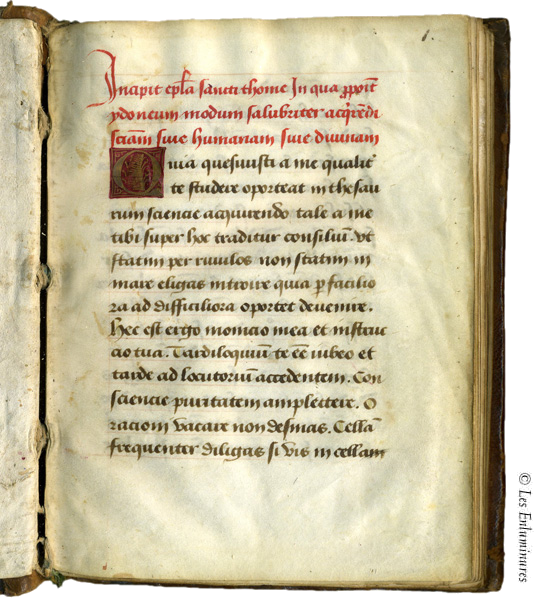 1.
Incipit epl̄a sancti thome In qua ꝓpoīt
ydoneum modum salubriter acq̇rēdi
sciām siue humanam siue diuinam
Quia quesiuisti a me qualit᷑
te studere oporteat in thesau
rum sciencie acquirendo tale a me
tibi super hoc traditur consiliū. vt
statim per riuulos non statim in
mare eligas introire quia ꝑ facilio
ra ad difficiliora oportet deuenire.
Hec est ergo monicio mea et instruc
cio tua. Tardiloquium te eē iubeo et
tarde ad locutorium accedentem. Con
sciencie puritatem amplectere. O
racioni vacare non desinas. Cellā
frequenter diligas si vis in cellam
© Les Enluminures